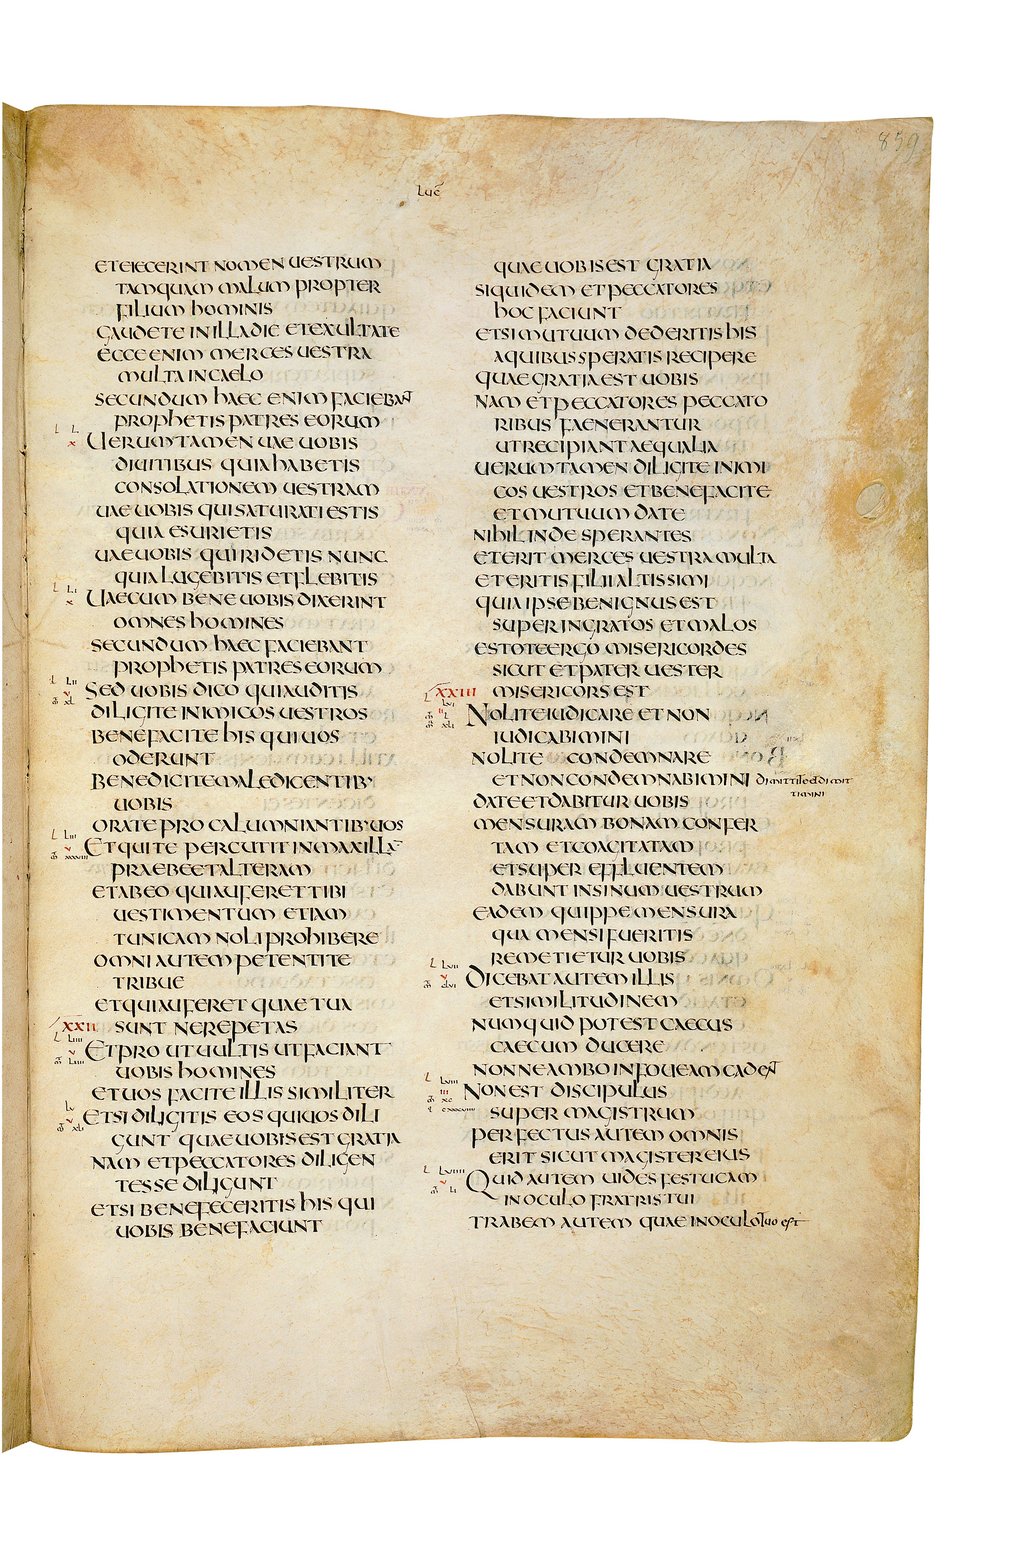 859
Luc
ET EIECERINT NOMEN UESTRUM
TAMQUAM MALUM PROPTER
FILIUM HOMINIS
GAUDETE IN ILLA DIE ET EXULTATE
ECCE ENIM MERCES UESTRA
MULTA IN CAELO
SECUNDUM HAEC ENIM FACIEBANT
PROPHETIS PATRES EORUM
UERUMTAMEN UAE UOBIS
DIUITIBUS QUIA HABETIS
CONSOLATIONEM UESTRAM
UAE UOBIS QUI SATURATI ESTIS
QUIA ESURIETIS
UAE UOBIS QUI RIDETIS NUNC
QUIA LUGEBITIS ET FLEBITIS
UAE CUM BENE UOBIS DIXERINT
OMNES HOMINES
SECUNDUM HAEC FACIEBANT
PROPHETIS PATRES EORUM
SED UOBIS DICO QUI AUDITIS
DILIGITE INIMICOS UESTROS
BENEFACITE HIS QUI UOS
ODERUNT
BENEDICITE MALEDICENTIB·
UOBIS
ORATE PRO CALUMNIANTIB· UOS
ET QUI TE PERCUTIT IN MAXILLA
PRAEBE ET ALTERAM
ET AB EO QUI AUFERET TIBI
UESTIMENTUM ETIAM
TUNICAM NOLI PROHIBERE
OMNI AUTEM PETENTI TE
TRIBUE
ET QUI AUFERET QUAE TUA
XXII SUNT NE REPETAS
ET PROUT UULTIS UT FACIANT
UOBIS HOMINES
ET UOS FACITE ILLIS SIMILITER
ET SI DILIGITIS EOS QUI UOS DILI
GUNT QUAE UOBIS EST GRATIA
NAM ET PECCATORES DILIGEN
TES SE DILIGUNT
ET SI BENEFECERITIS HIS QUI
UOBIS BENEFACIUNT
QUAE UOBIS EST GRATIA
SIQUIDEM ET PECCATORES
HOC FACIUNT
ET SI MUTUUM DEDERITIS HIS
A QUIBUS SPERATIS RECIPERE
QUAE GRATIA EST UOBIS
NAM ET PECCATORES PECCATO
RIBUS FAENERANTUR
UT RECIPIANT AEQUALIA
UERUMTAMEN DILIGITE INIMI
COS UESTROS ET BENEFACITE
ET MUTUUM DATE
NIHIL INDE SPERANTES
ET ERIT MERCES UESTRA MULTA
ET ERITIS FILII ALTISSIMI
QUIA IPSE BENIGNUS EST
SUPER INGRATOS ET MALOS
ESTOTE ERGO MISERICORDES
SICUT ET PATER UESTER
XXIII MISERICORS EST
NOLITE IUDICARE ET NON
IUDICABIMINI
NOLITE CONDEMNARE
ET NON CONDEMNABIMINI dimittite et dimit
timini
DATE ET DABITUR UOBIS
MENSURAM BONAM CONFER
TAM ET COAGITATAM
ET SUPER EFFLUENTEM
DABUNT IN SINUM UESTRUM
EADEM QUIPPE MENSURA
QUA MENSI FUERITIS
REMETIETUR UOBIS
DICEBAT AUTEM ILLIS
ET SIMILITUDINEM
NUMQUID POTEST CAECUS
CAECUM DUCERE
NONNE AMBO IN FOUEAM CADENT
NON EST DISCIPULUS
SUPER MAGISTRUM
PERFECTUS AUTEM OMNIS
ERIT SICUT MAGISTER EIUS
QUID AUTEM UIDES FESTUCAM
IN OCULO FRATRIS TUI
TRABEM AUTEM QUAE IN OCULO Tuo est